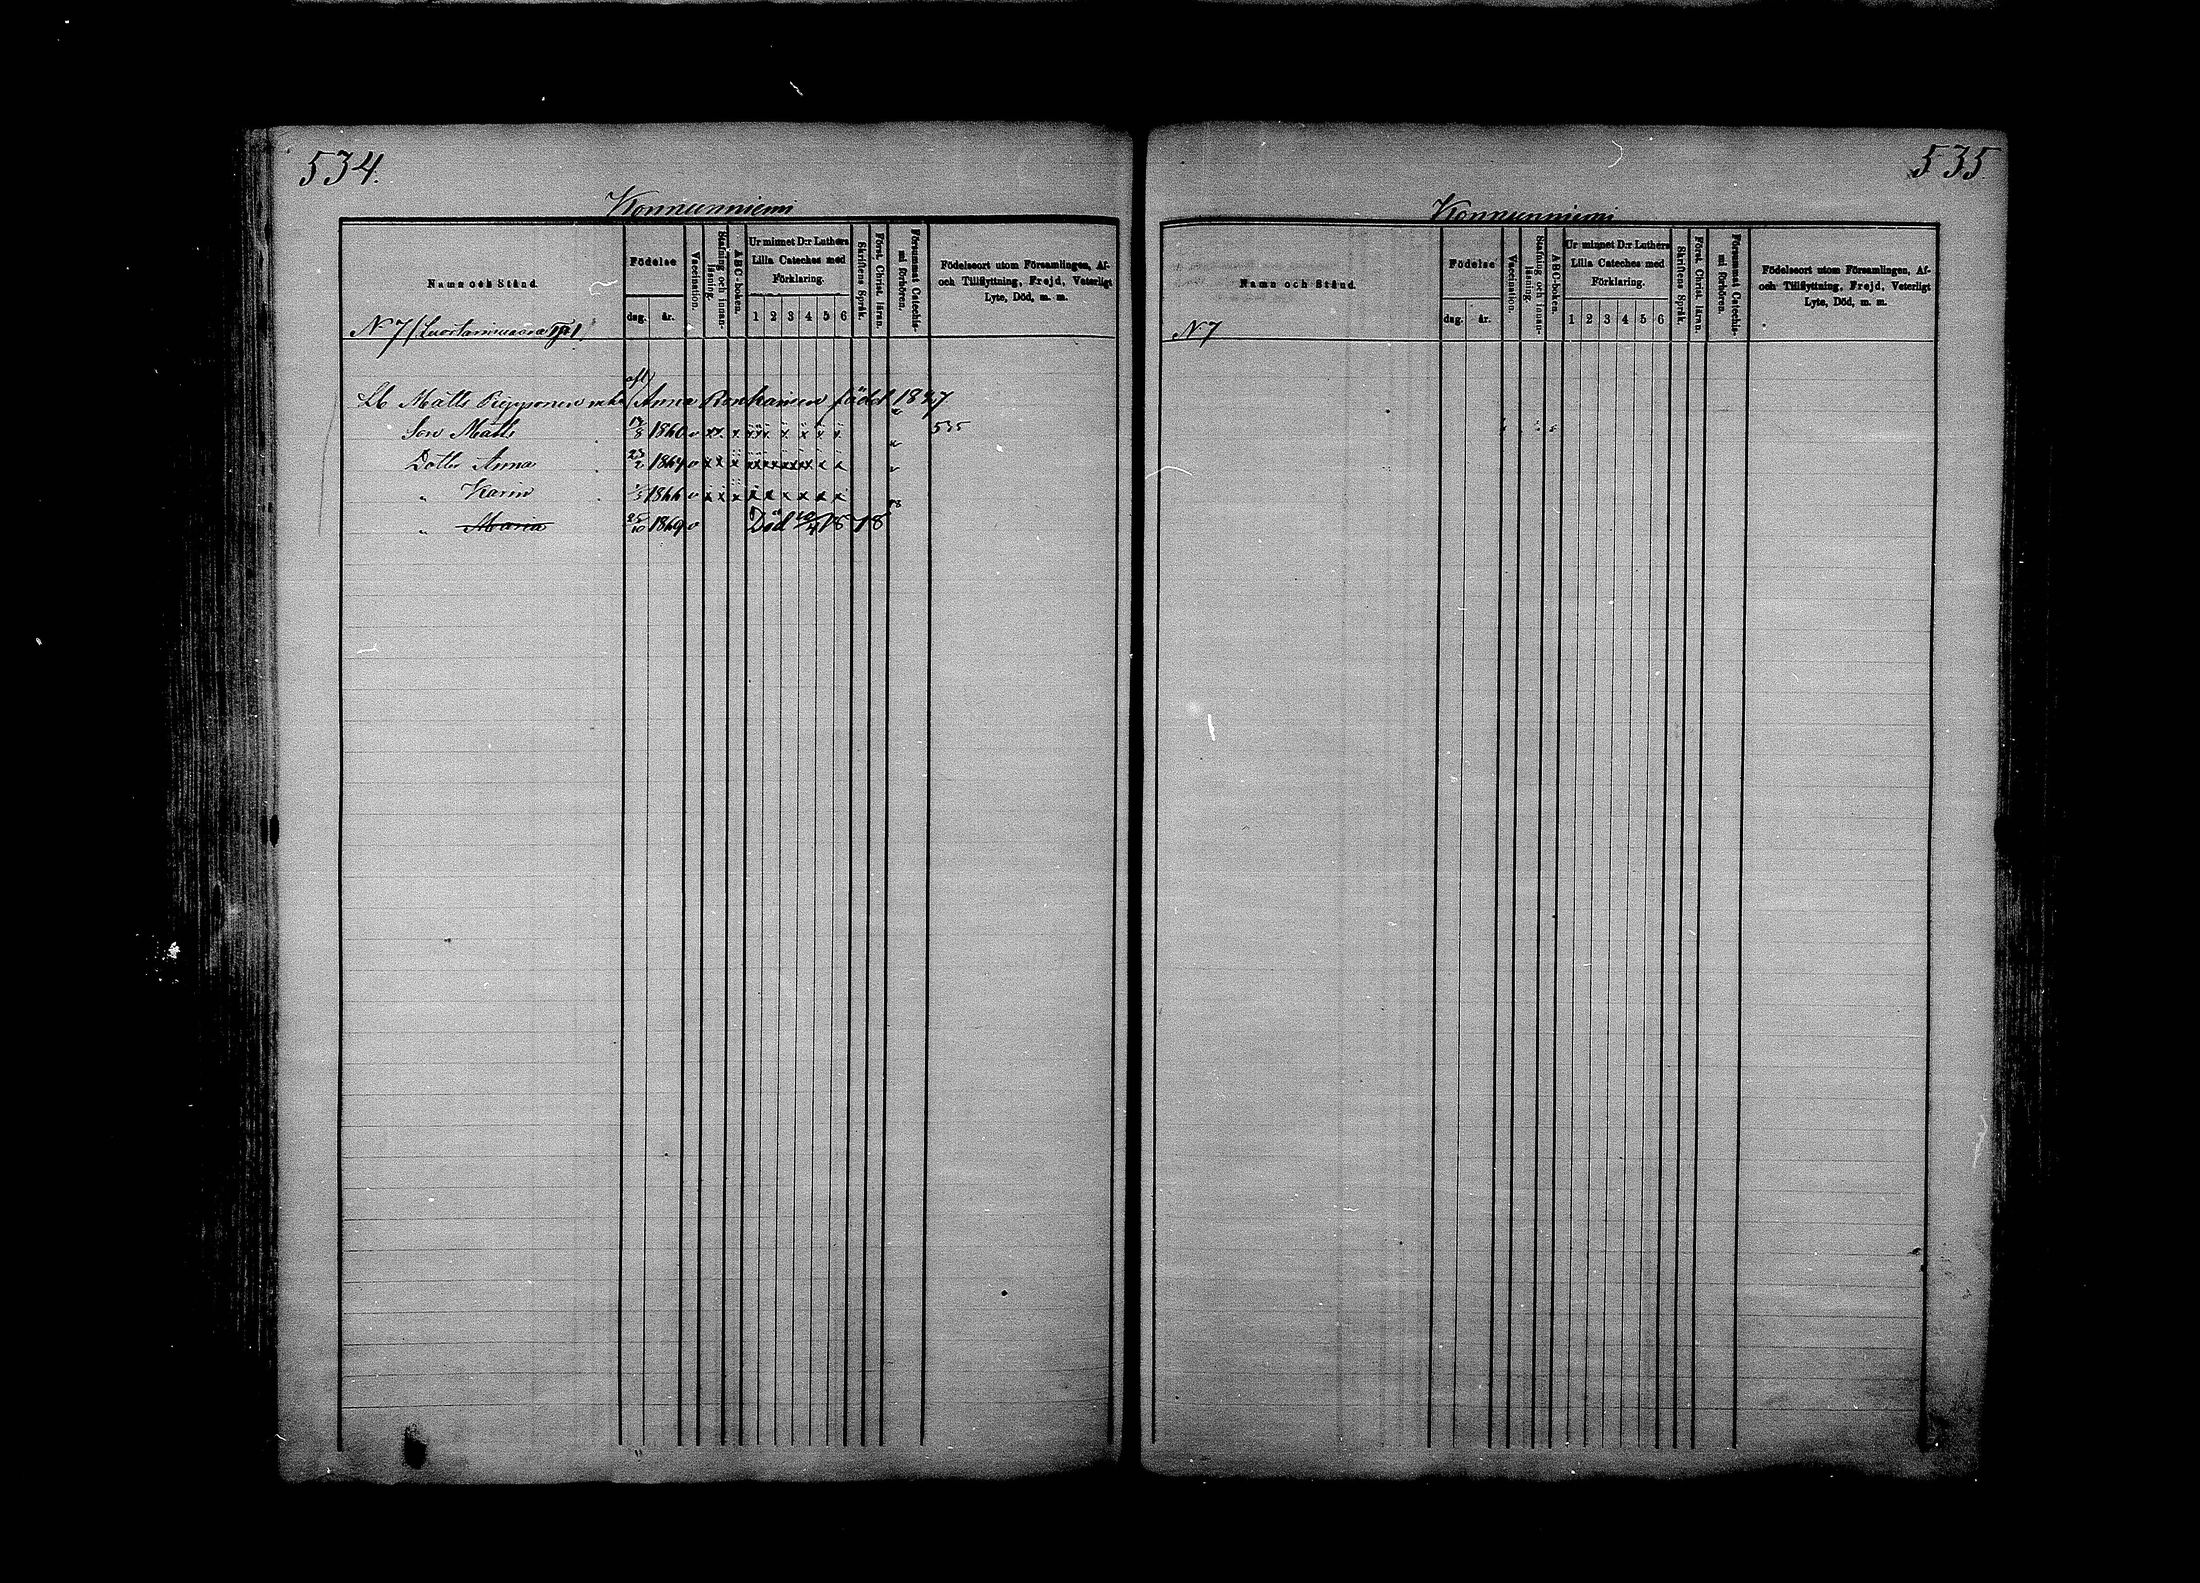 534.
Konnunniemi
Namn och Stånd.
Födelse
dag. år.
Vaccination.
Stafning och innan-
läsning.
ABC-boken.
Ur minnet D:r Luthers
Lilla Cateches med
Förklaring.
1 2 3 4 5 6
Skriftens Språk.
Först. Christ. läran.
Försummat Catechis-
mi förhören.
Födelseort utom Församlingen, Af-
och Tillflyttning, Frejd, Vaterligt
Lyte, Död, m. m.
N 7
afl.
Lb Matts Piipponen enka Anna Ronkainen född 1827
Son Matts 17/8 1860 v 535
Dotter Anna 23/2 1864 v
" Karin 1/3 1866 v
" Maria 25/10 1869 v Död 18
535
Konnunniemi
Namn och Stånd.
Födelse
dag. år.
Vaccination.
Stafning och innan-
läsning.
ABC-boken.
Ur minnet D:r Luthers
Lilla Cateches med
Förklaring.
1 2 3 4 5 6
Skriftens Språk.
Först. Christ. läran.
Försummat Catechis-
mi förhören.
Födelseort utom Församlingen, Af-
och Tillflyttning, Frejd, Vaterligt
Lyte, Död, m. m.
N 7